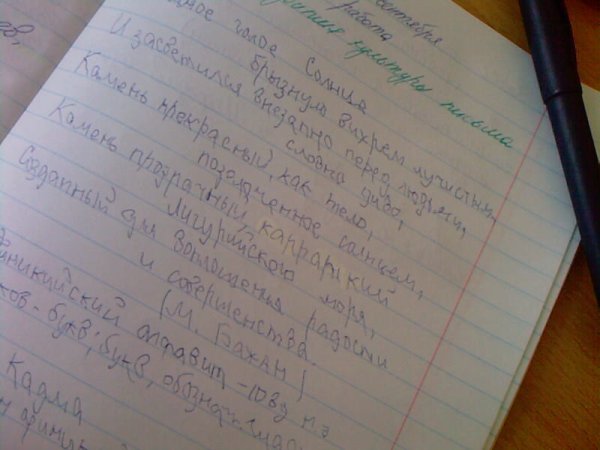 сентября
работа
культуры письма
голое солнце
брызнуло вихрем лучистым,
И засветился внезапно перед людьми,
словно диво,
Камень прекрасный, как тело,
позлащенное солнцем,
Камень прозрачный, каррарский
Лигурийского моря,
Созданный для воплощения радости
и совершенства.
(М. Бажан)
алфавит - 10 в д н.э
букв; букв,
Кадма